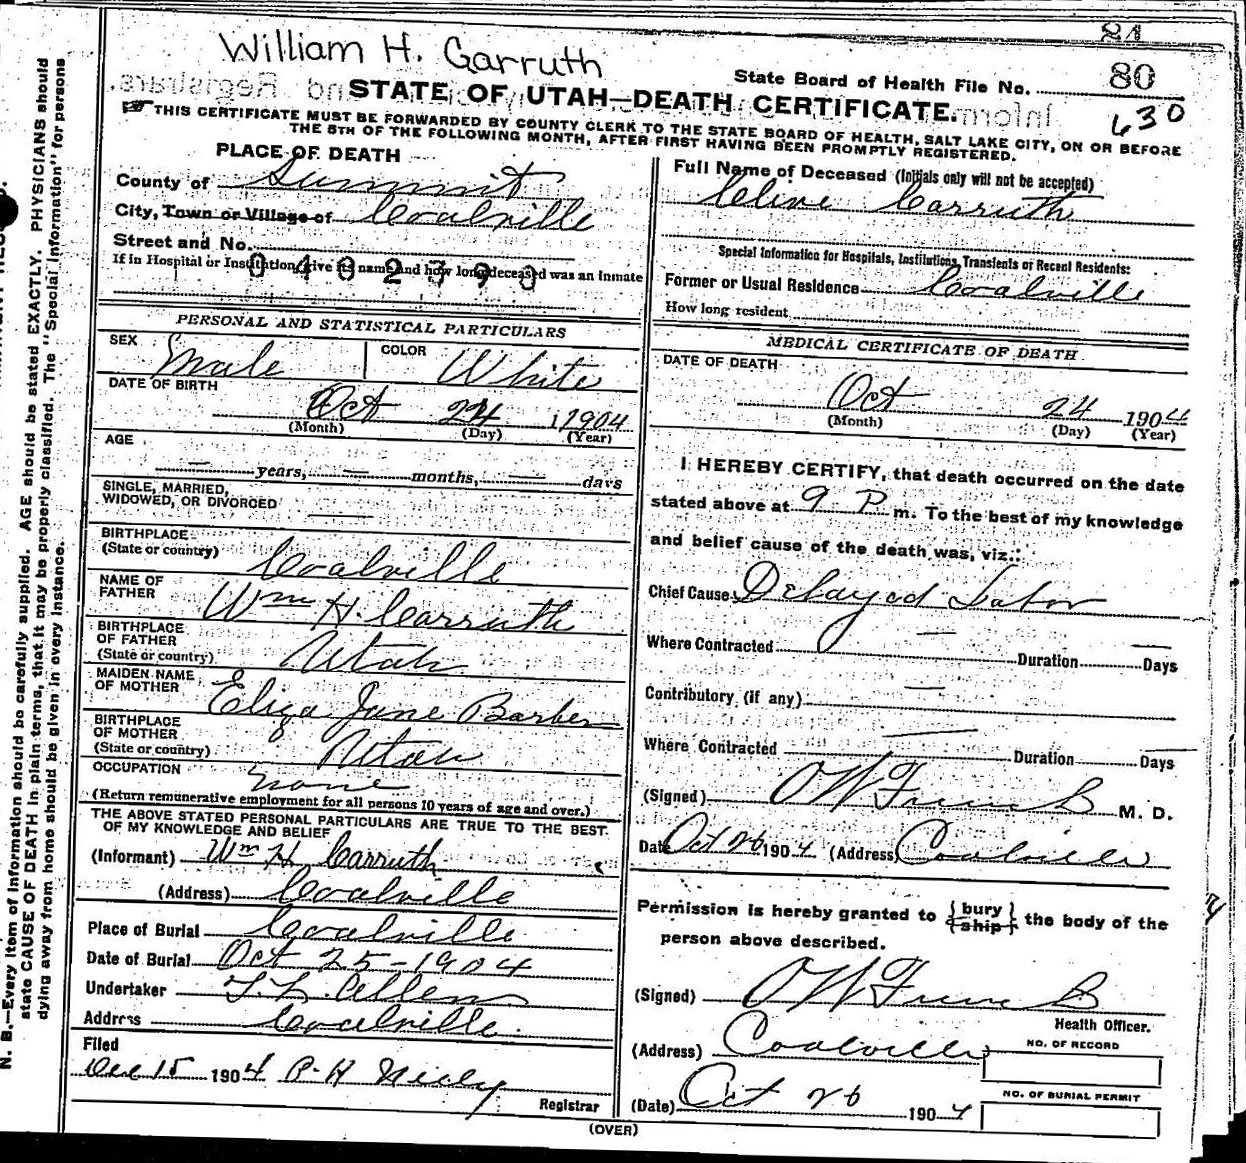 21
William H. Carruth
State Board of Health File No. 80
STATE OF UTAH—DEATH CERTIFICATE.
630
THIS CERTIFICATE MUST BE FORWARDED BY COUNTY CLERK TO THE STATE BOARD OF HEALTH, SALT LAKE CITY, ON OR BEFORE
THE 5TH OF THE FOLLOWING MONTH, AFTER FIRST HAVING BEEN PROMPTLY REGISTERED.
PLACE OF DEATH
County of Summit
City, Town or Village of Coalville
Street and No.
If in Hospital or Institution, give its name and how long deceased was an Inmate
Full Name of Deceased (Initials only will not be accepted)
Carruth
Special Information for Hospitals, Institutions, Transients or Recent Residents:
Former or Usual Residence Coalville
How long resident
PERSONAL AND STATISTICAL PARTICULARS
SEX Male COLOR White
DATE OF BIRTH
Oct 24 1904
(Month) (Day) (Year)
AGE
— years, — months, — days
SINGLE, MARRIED,
WIDOWED, OR DIVORCED —
BIRTHPLACE
(State or country) Coalville
NAME OF
FATHER Wm H. Carruth
BIRTHPLACE
OF FATHER
(State or country) Utah
MAIDEN NAME
OF MOTHER Eliza Jane Barber
BIRTHPLACE
OF MOTHER
(State or country) Utah
OCCUPATION none
(Return remunerative employment for all persons 10 years of age and over.)
THE ABOVE STATED PERSONAL PARTICULARS ARE TRUE TO THE BEST
OF MY KNOWLEDGE AND BELIEF
(Informant) Wm H Carruth
(Address) Coalville
Place of Burial Coalville
Date of Burial Oct 25-1904
Undertaker
Address Coalville
Filed
Dec 15 1904
Registrar
MEDICAL CERTIFICATE OF DEATH
DATE OF DEATH
Oct 24 1904
(Month) (Day) (Year)
I HEREBY CERTIFY, that death occurred on the date
stated above at 9 P. m. To the best of my knowledge
and belief cause of the death was, viz.:
Chief Cause Delayed Labor
Where Contracted — Duration — Days
Contributory (if any) —
Where Contracted — Duration — Days
(Signed) M. D.
Date Oct 26 1904 (Address) Coalville
Permission is hereby granted to { bury
ship } the body of the
person above described.
(Signed)
Health Officer.
(Address) Coalville
NO. OF RECORD
NO. OF BURIAL PERMIT
(Date) Oct 26 1904
(OVER)
N. B.—Every item of information should be carefully supplied. AGE should be stated EXACTLY. PHYSICIANS should
state CAUSE OF DEATH in plain terms, that it may be properly classified. The "Special Information" for persons
dying away from home should be given in every instance.